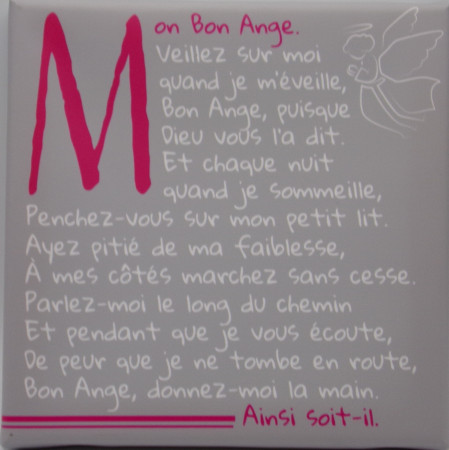 Mon Bon Ange.
Veillez sur moi
quand je m'éveille,
Bon Ange, puisque
Dieu vous l'a dit.
Et chaque nuit
quand je sommeille,
Penchez-vous sur mon petit lit.
Ayez pitié de ma faiblesse,
À mes côtés marchez sans cesse.
Parlez-moi le long du chemin
Et pendant que je vous écoute,
De peur que je ne tombe en route,
Bon Ange, donnez-moi la main.
Ainsi soit-il.